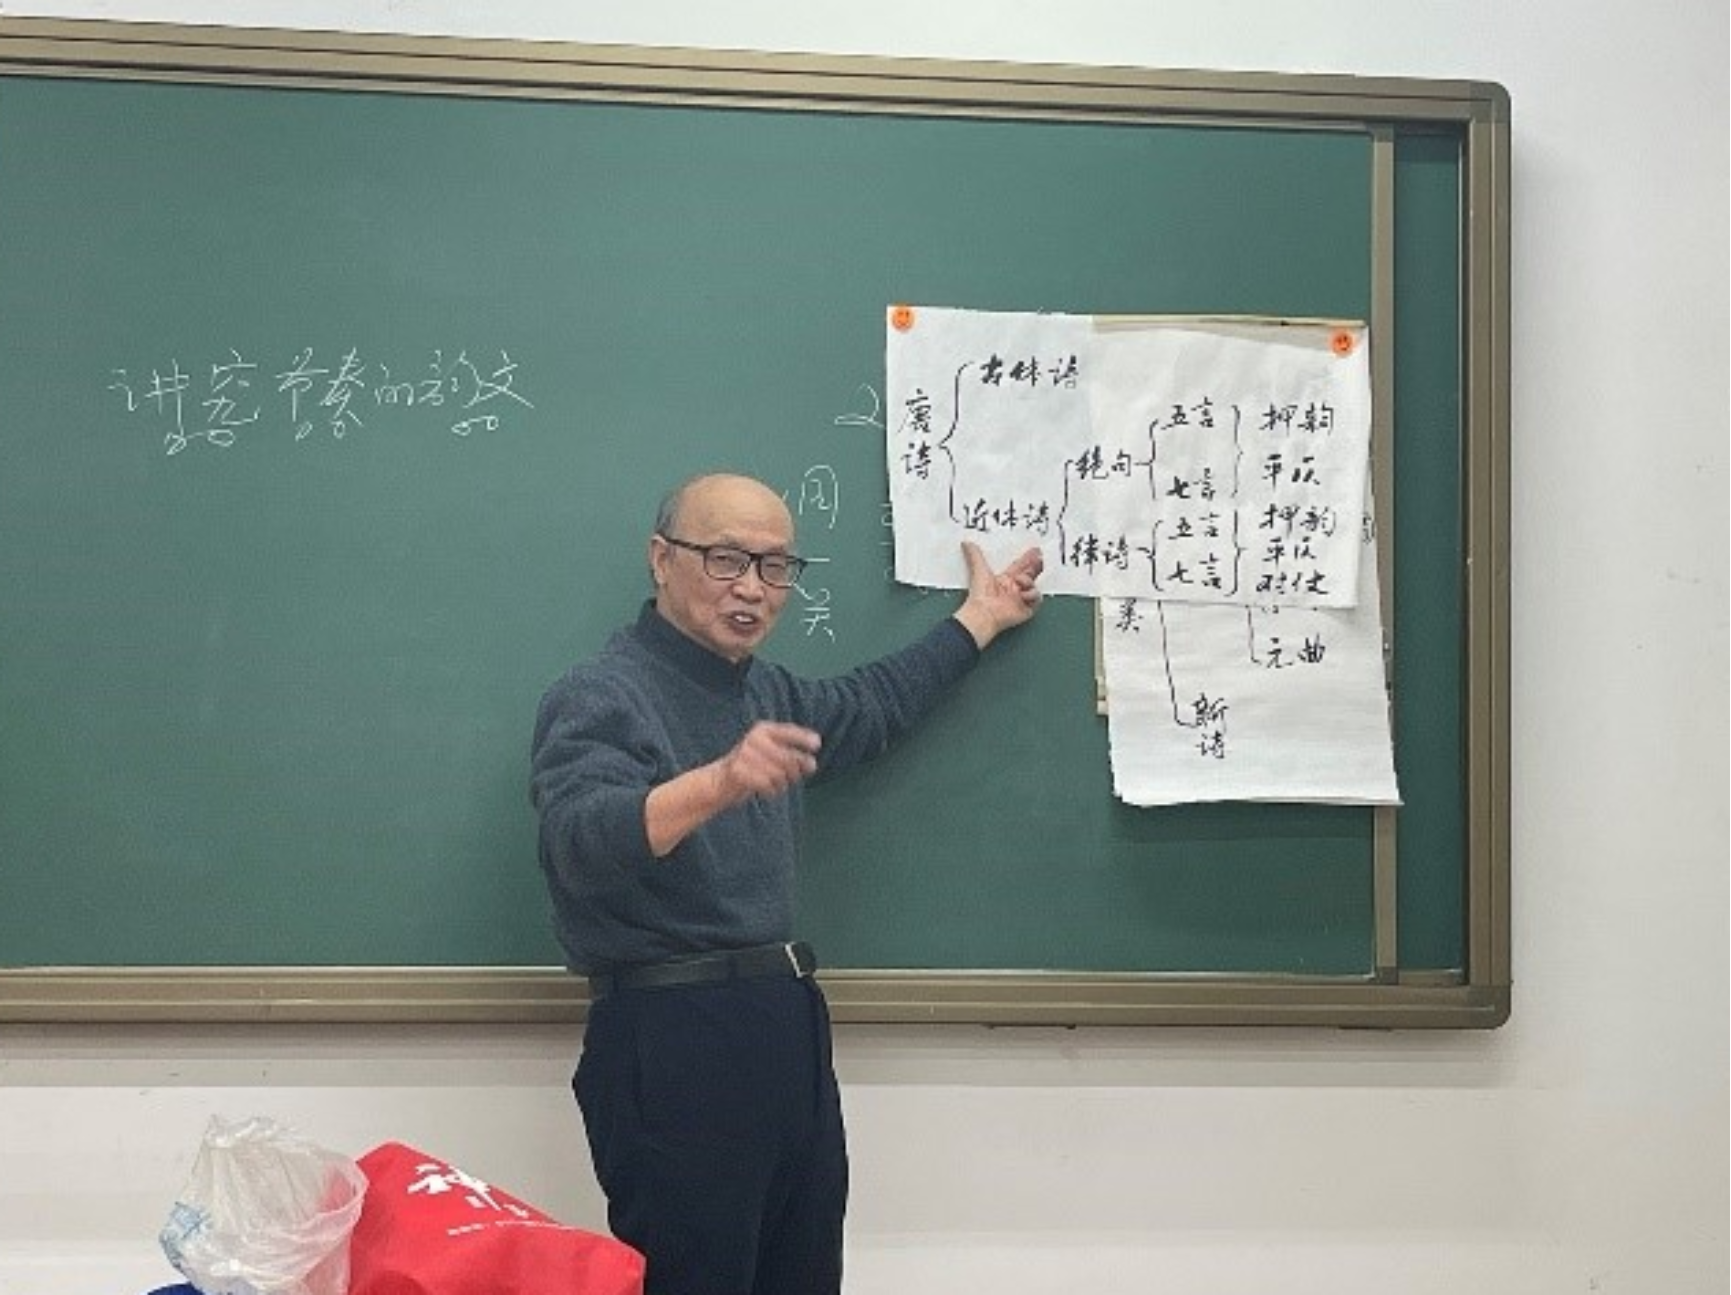 讲究节奏的韵文
2
唐诗
古体诗
近体诗
绝句
律诗
五言
七言
五言
七言
押韵
平仄
押韵
平仄
对仗
类
元曲
新诗